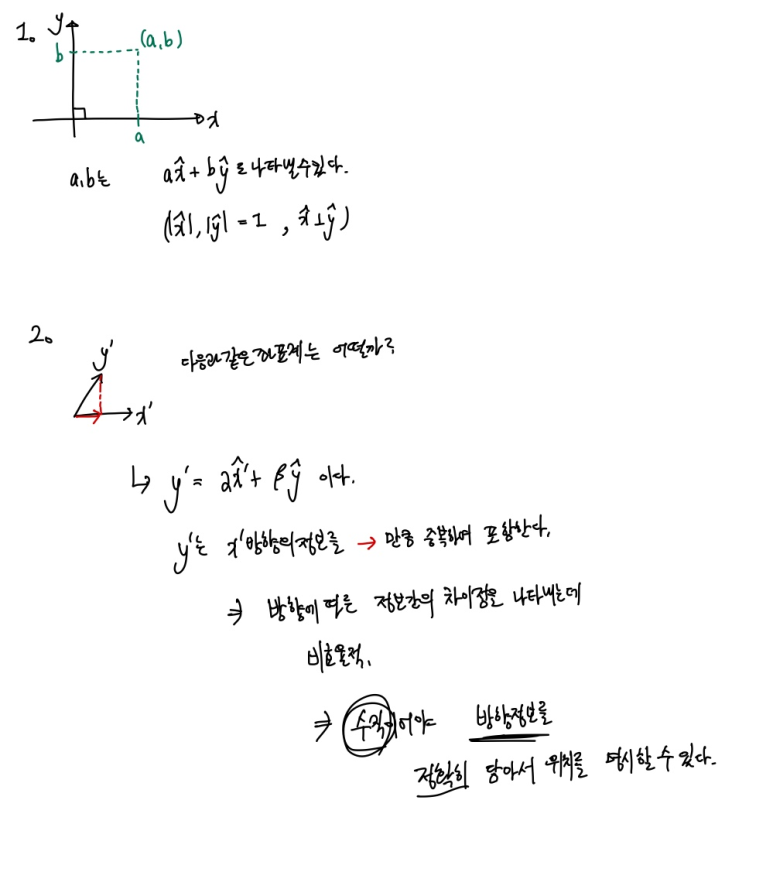 1.
y
b
(a,b)
x
a
a,b는 ax̂ + bŷ로 나타낼수있다.
(|x̂|, |ŷ| = 1 , x̂⊥ŷ)
2.
y'
x'
다음과 같은 좌표계는 어떨까?
↳ y' = αx̂' + βŷ 이다.
y'는 x'방향의 정보를 → 만큼 중복하여 포함한다.
⇒ 방향에 따른 정보간의 차이점을 나타내는데
비효율적.
⇒ 수직이어야 방향정보를
정확히 담아서 위치를 명시할 수 있다.